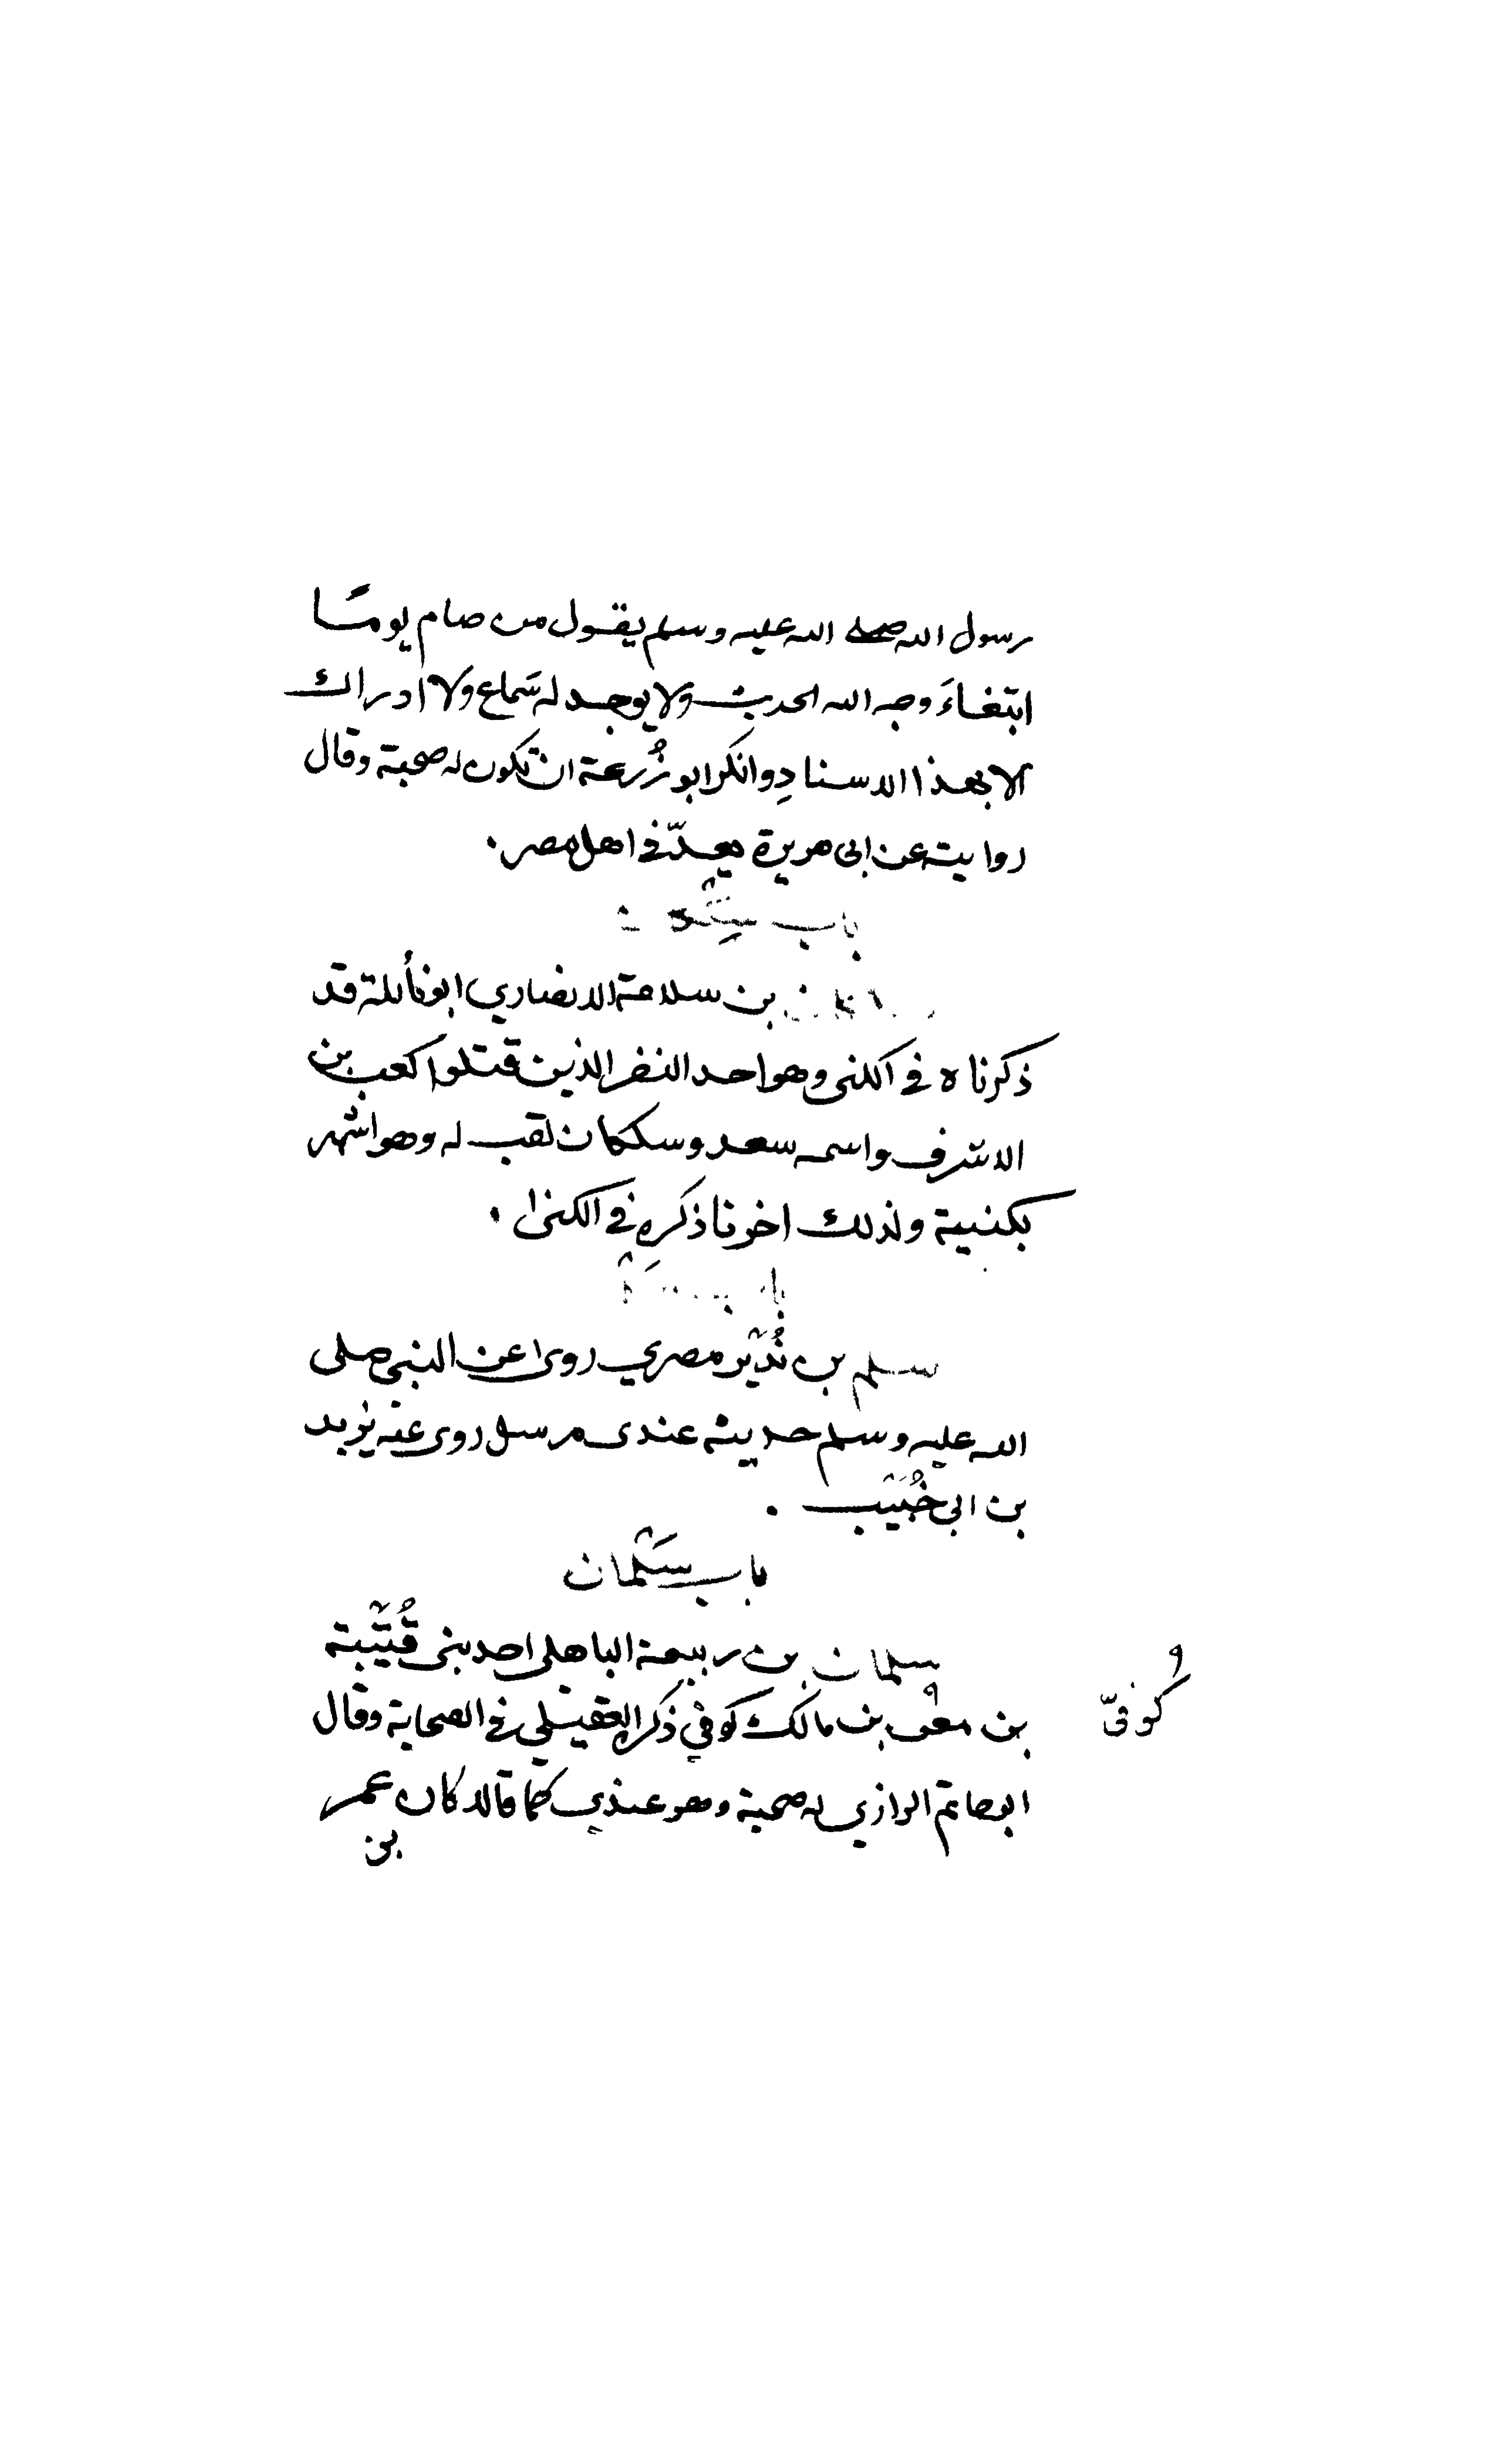 رسول الله صلى الله عليه وسلم يقول من صام يومًا
ابتغاءَ وجه الله الحديث ولا يوجد له سَماع ولا ادراك
الا بهذا الاسنادِ وانكر ابو زُرعة ان تكون له صحبة وقال
روايته عن ابى هريرة يعدّ في اهل مصر.
باب
بن سلامة الانصاري ابو نائلة قد
ذكرناه في الكنى وهو احد النفر الذين قتلوا كعب بن
الاشرف واسمه سعد وسلكان لقب له وهو اشهر
بكنيية ولذلك اخرنا ذكره في الكنى.
سلم بن نُذَيْر مصري روى عن النبي صلى
الله عليه وسلم حديثه عندى مرسل روى عنه يزيد
بن ابي حُبَيْب .
باب سَلْمان
سلمان بن ربيعة الباهلى احد بنى قُتَيْبة
بن معن بن مالك كوفي ذكره العقيلي في الصحابة وقال
كُوفىّ
ابو حاتم الرازي له صحبة وهو عندي كما قالا كان عمر
بن